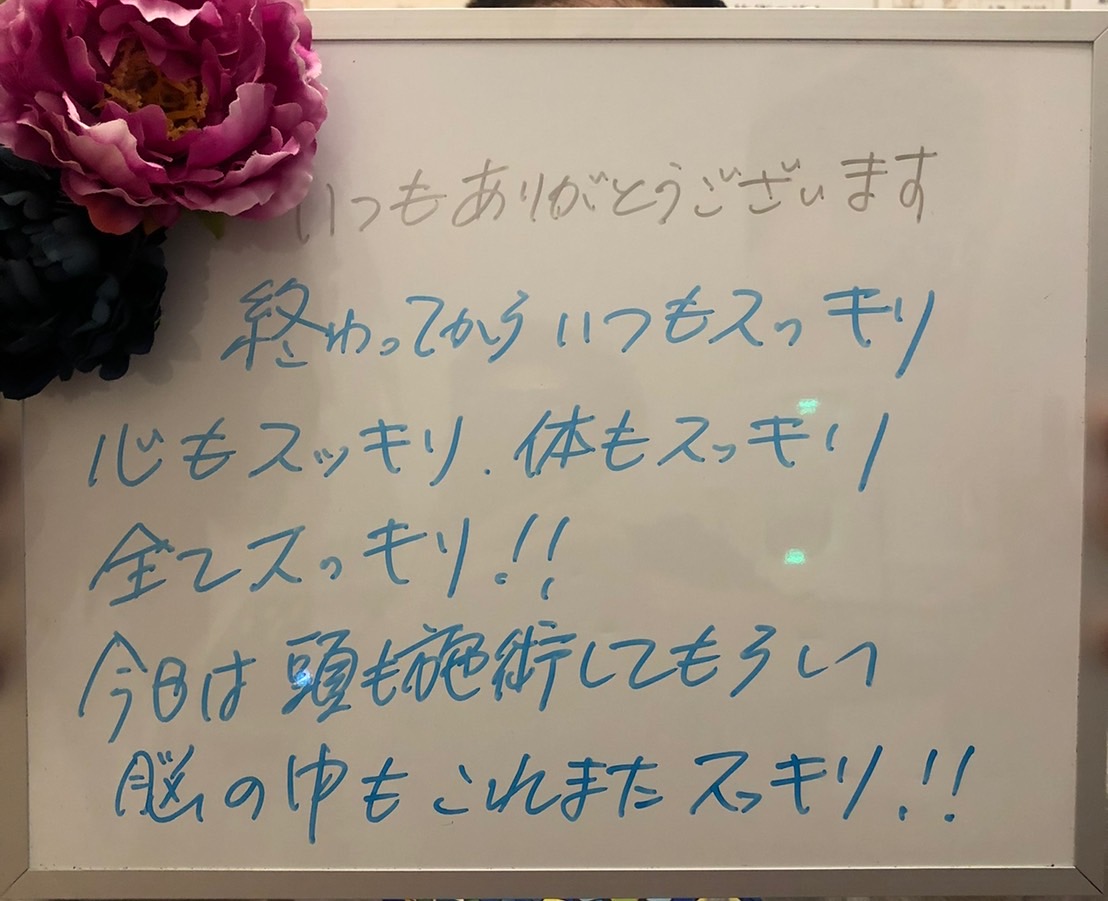 いつもありがとうございます
終わってからいつもスッキリ
心もスッキリ．体もスッキリ
全てスッキリ!!
今日は頭も施術してもらい
脳の中もこれまたスッキリ!!